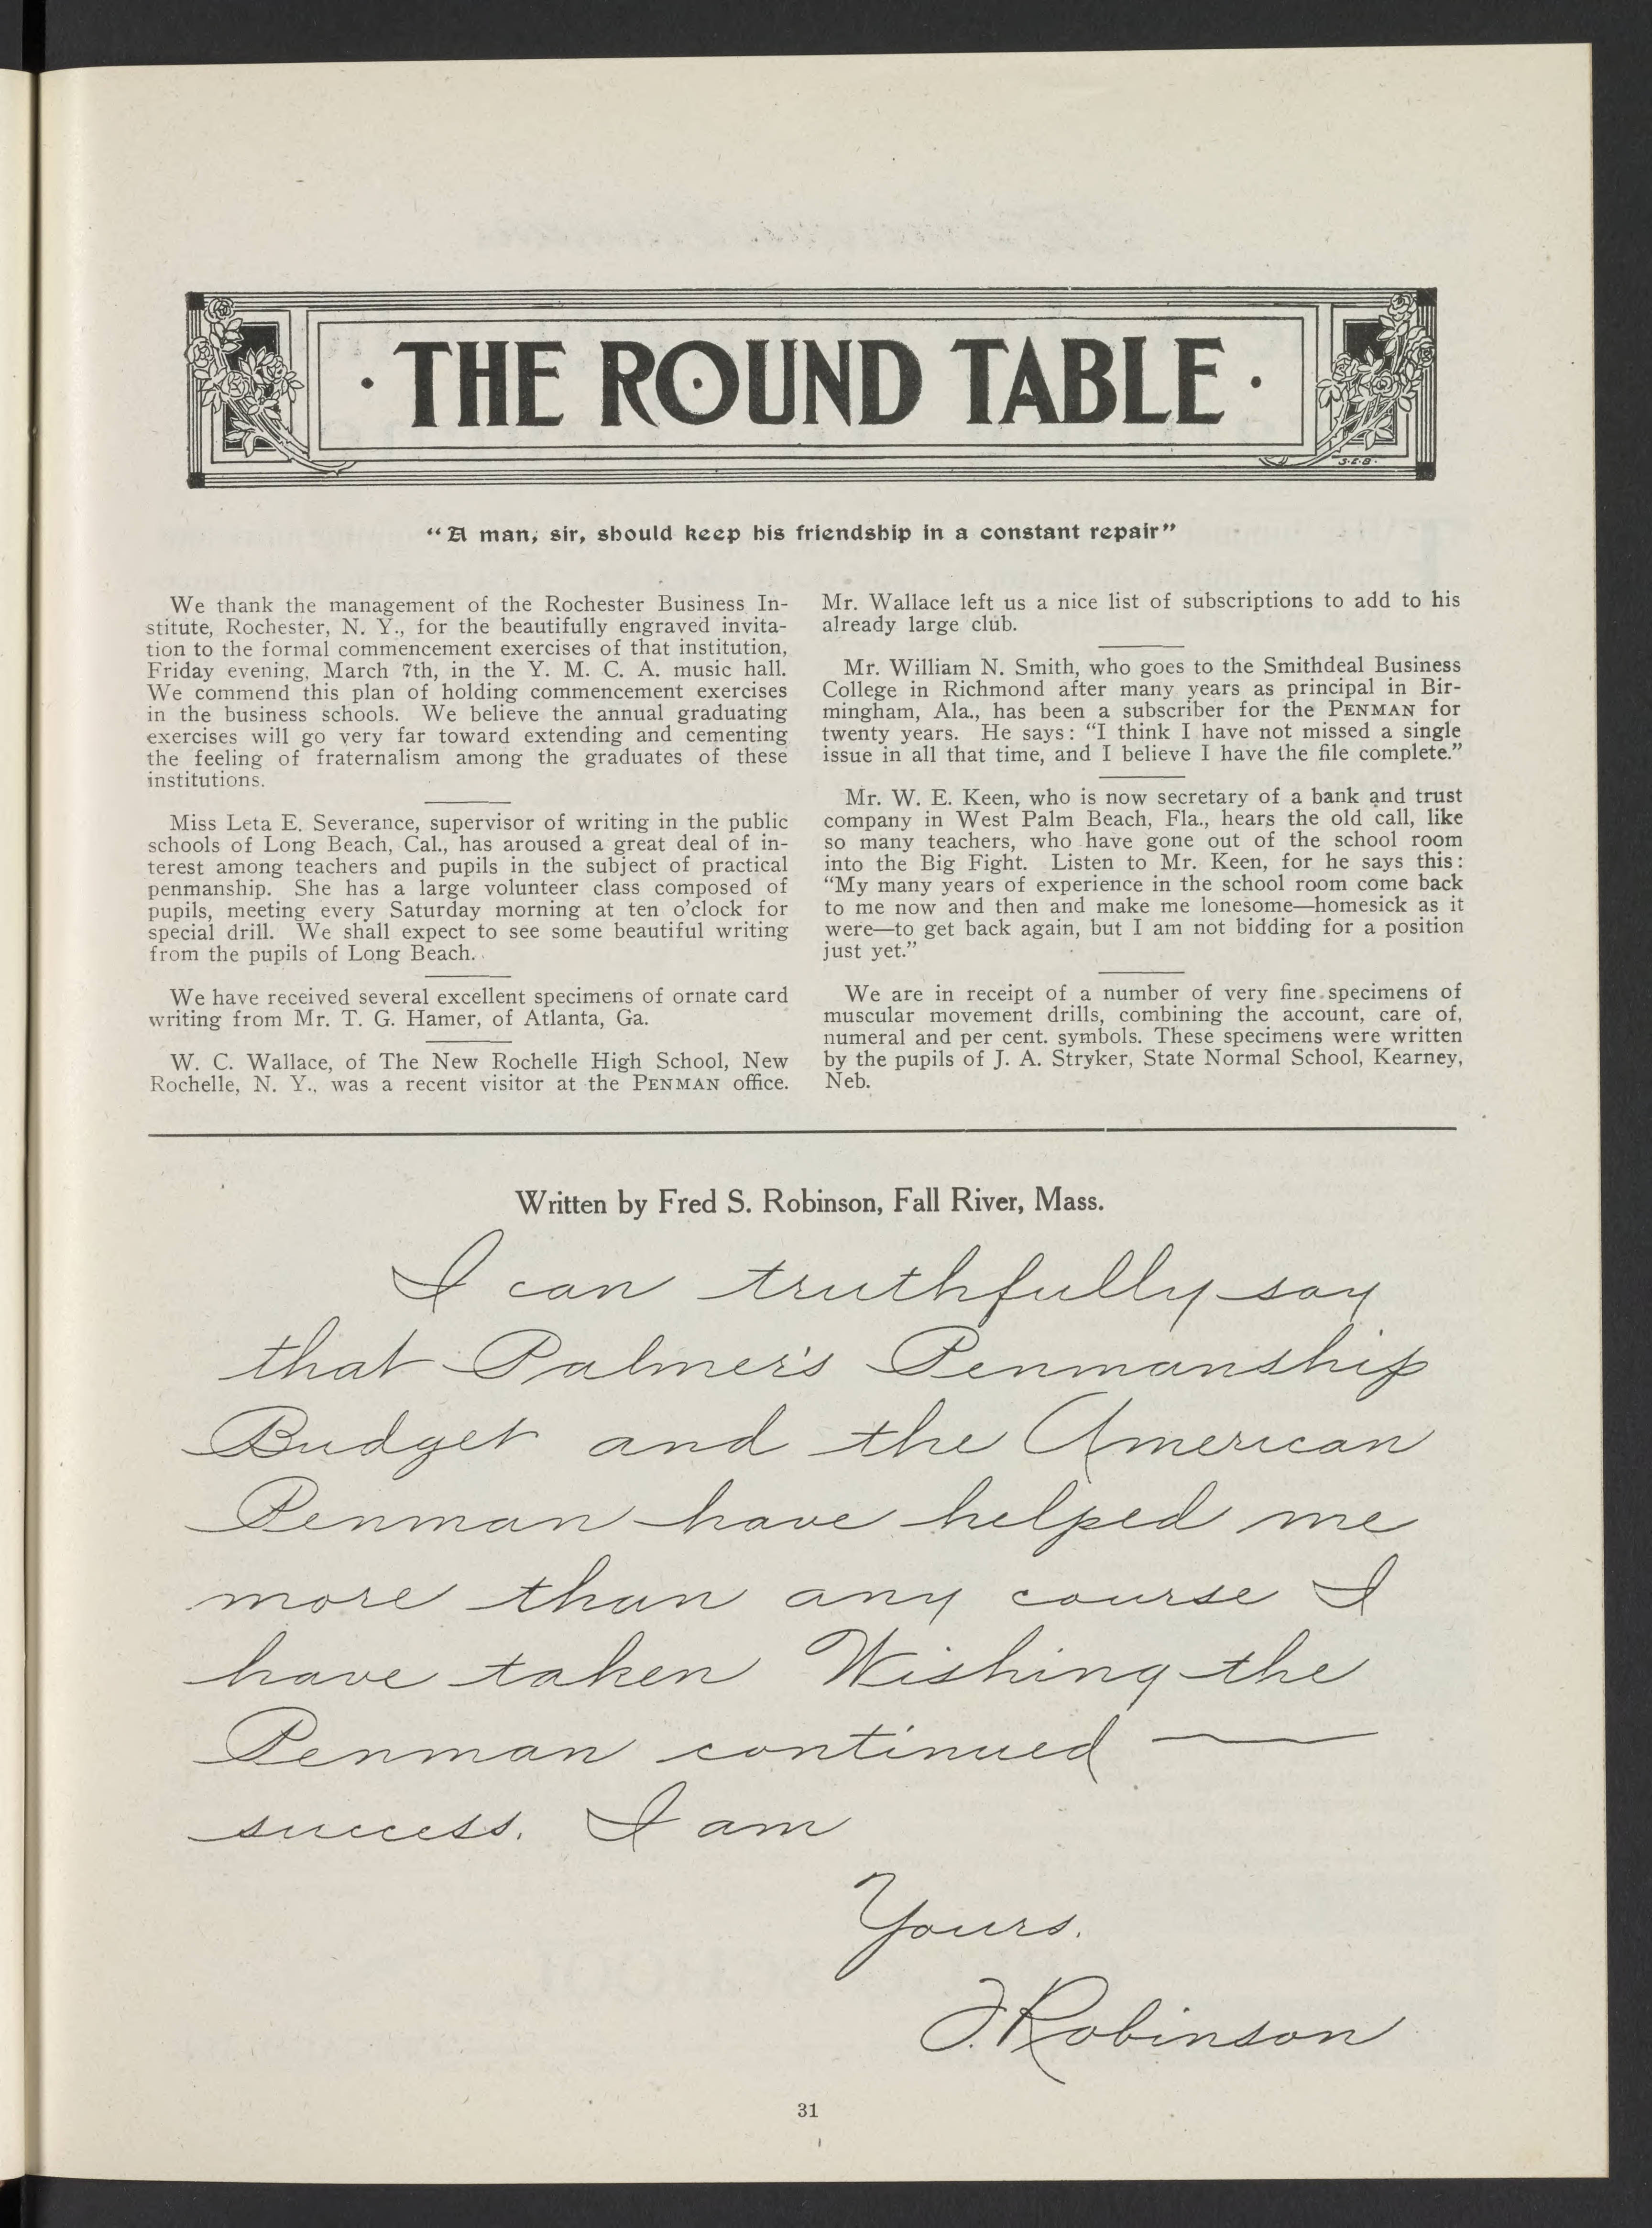 · THE ROUND TABLE ·
J·E·B·
“A man, sir, should keep his friendship in a constant repair”
We thank the management of the Rochester Business In-
stitute, Rochester, N. Y., for the beautifully engraved invita-
tion to the formal commencement exercises of that institution,
Friday evening, March 7th, in the Y. M. C. A. music hall.
We commend this plan of holding commencement exercises
in the business schools. We believe the annual graduating
exercises will go very far toward extending and cementing
the feeling of fraternalism among the graduates of these
institutions.
Miss Leta E. Severance, supervisor of writing in the public
schools of Long Beach, Cal., has aroused a great deal of in-
terest among teachers and pupils in the subject of practical
penmanship. She has a large volunteer class composed of
pupils, meeting every Saturday morning at ten o’clock for
special drill. We shall expect to see some beautiful writing
from the pupils of Long Beach.
We have received several excellent specimens of ornate card
writing from Mr. T. G. Hamer, of Atlanta, Ga.
W. C. Wallace, of The New Rochelle High School, New
Rochelle, N. Y., was a recent visitor at the PENMAN office.
Mr. Wallace left us a nice list of subscriptions to add to his
already large club.
Mr. William N. Smith, who goes to the Smithdeal Business
College in Richmond after many years as principal in Bir-
mingham, Ala., has been a subscriber for the PENMAN for
twenty years. He says: “I think I have not missed a single
issue in all that time, and I believe I have the file complete.”
Mr. W. E. Keen, who is now secretary of a bank and trust
company in West Palm Beach, Fla., hears the old call, like
so many teachers, who have gone out of the school room
into the Big Fight. Listen to Mr. Keen, for he says this:
“My many years of experience in the school room come back
to me now and then and make me lonesome—homesick as it
were—to get back again, but I am not bidding for a position
just yet.”
We are in receipt of a number of very fine specimens of
muscular movement drills, combining the account, care of,
numeral and per cent. symbols. These specimens were written
by the pupils of J. A. Stryker, State Normal School, Kearney,
Neb.
Written by Fred S. Robinson, Fall River, Mass.
I can truthfully say
that Palmer's Penmanship
Budget and the American
Penman have helped me
more than any course I
have taken Wishing the
Penman continued —
success. I am
Yours.
F. Robinson
31